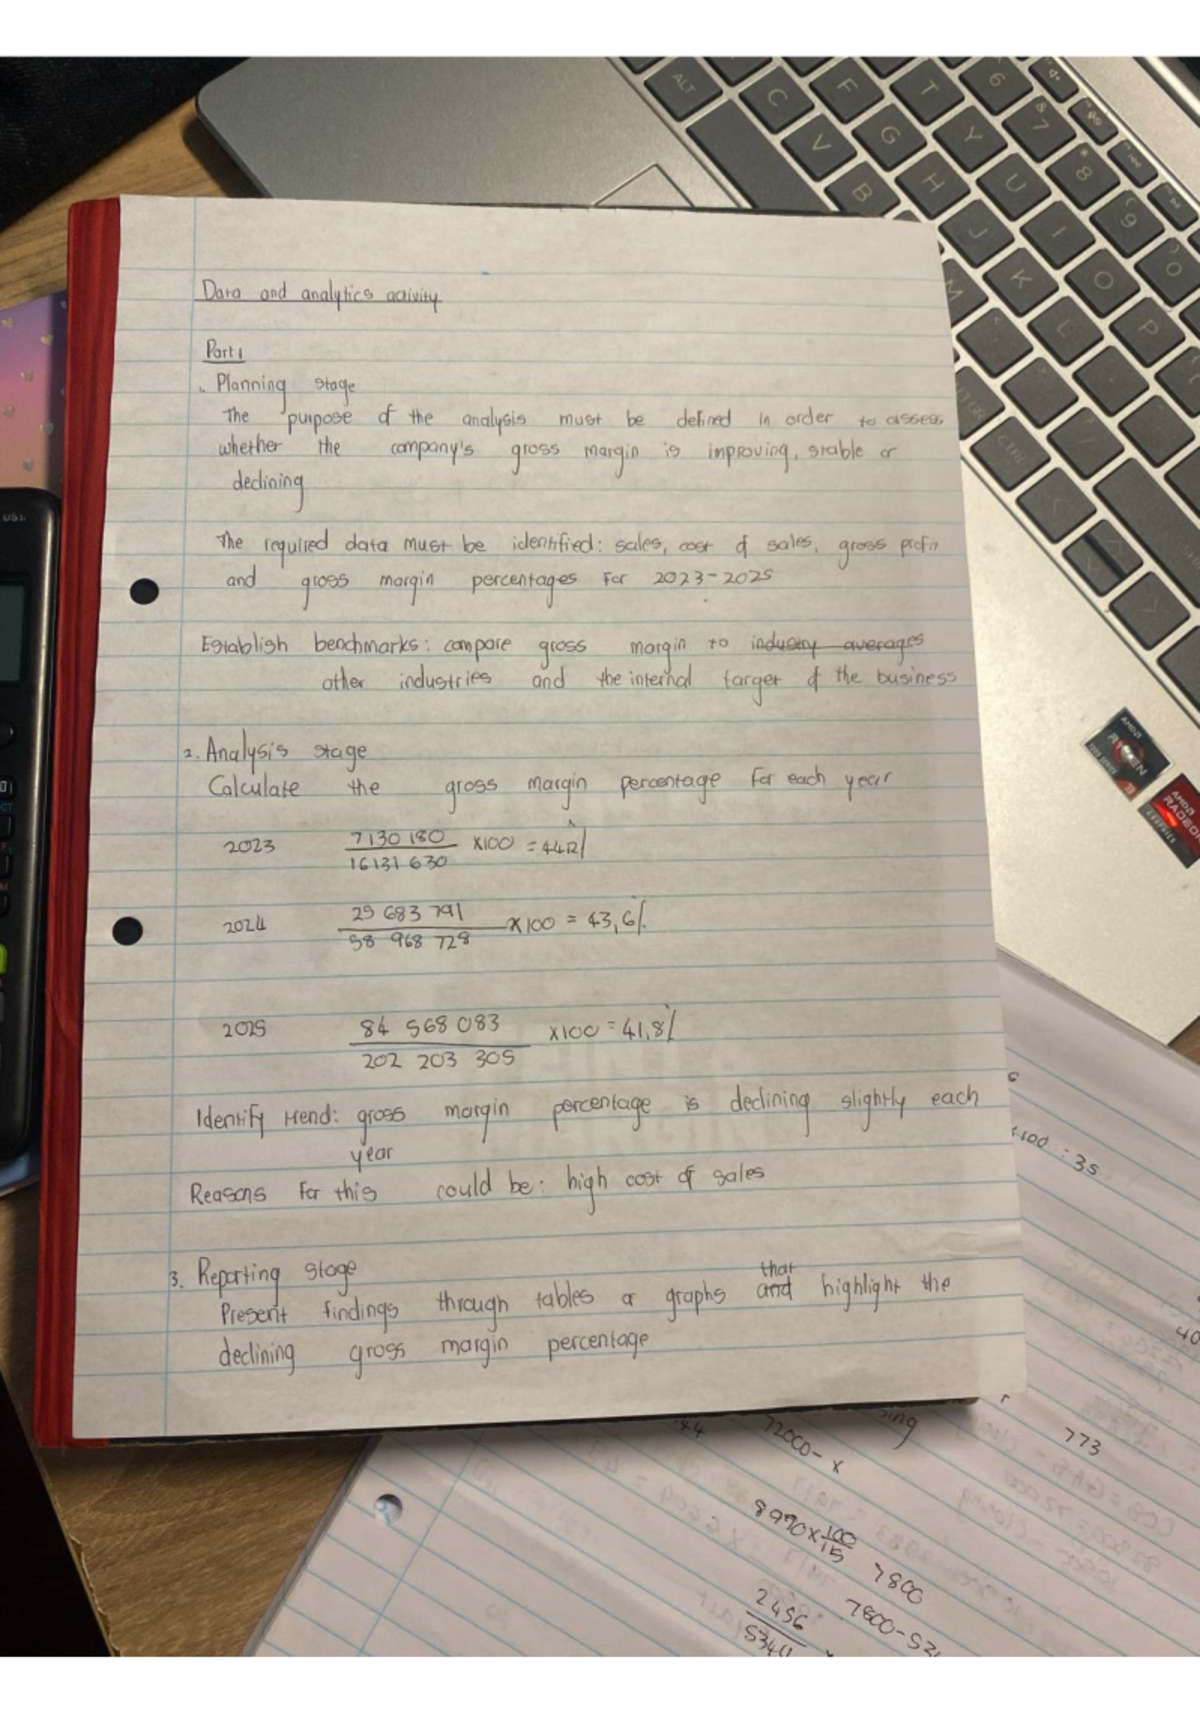 Data and analytics activity
Part 1
1. Planning stage
The purpose of the analysis must be defined in order to assess
whether the company's gross margin is improving, stable or
declining
The required data must be identified: sales, cost of sales, gross profit
and gross margin percentages for 2023-2025
Establish benchmarks: compare gross margin to industry averages
other industries and the internal target of the business
2. Analysis stage
Calculate the gross margin percentage for each year
2023 7130 180 x100 = 44,2%
16131 630
2024 25 683 791 x100 = 43,6%
58 968 728
2025 84 568 083 x100 = 41,8%
202 203 305
Identify trend: gross margin percentage is declining slightly each
year
Reasons for this could be: high cost of sales
3. Reporting stage
that
Present findings through tables or graphs and highlight the
declining gross margin percentage
x100 = 35
40
773
44 72000- x
8970x100
15
7800
7800-52
2456
5344
ALT C V B F G H T Y J 6 7 U K M 8 I L 9 O P 0
ALT GR
CTRL
AMD
RYZEN
3
AMD
RADEON
GRAPHICS